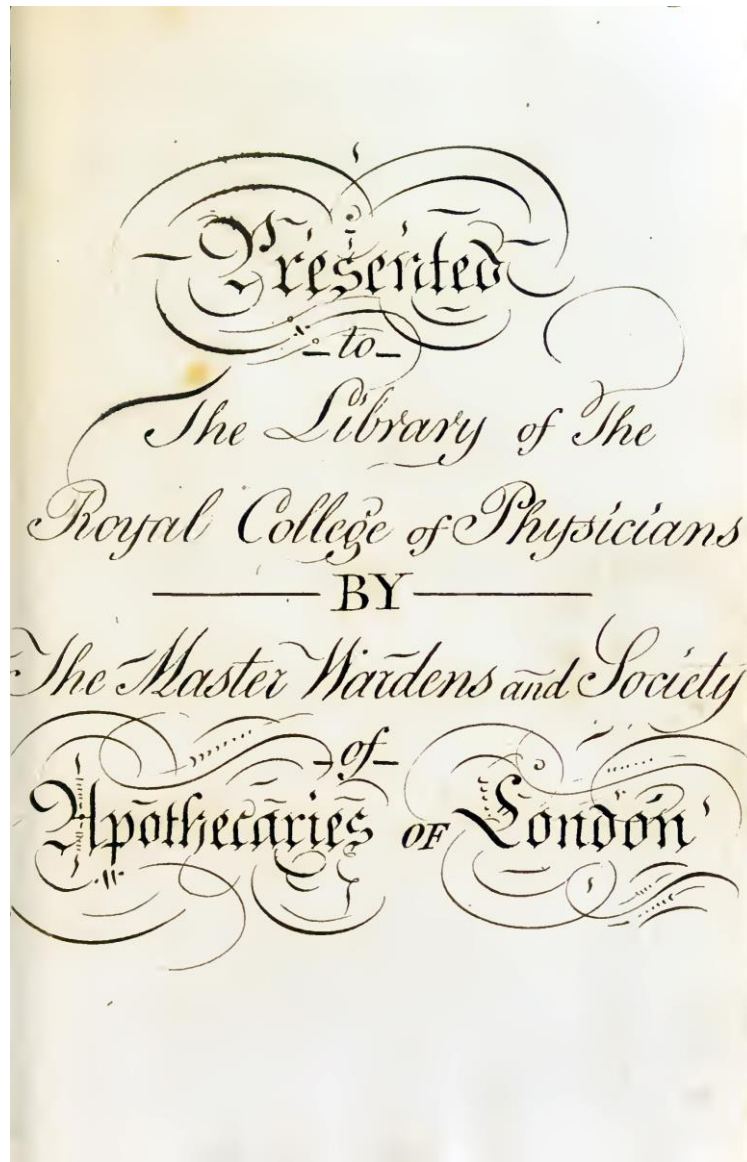 Presented
to
The Library of The
Royal College of Physicians
BY
The Master Wardens and Society
of
Apothecaries OF London